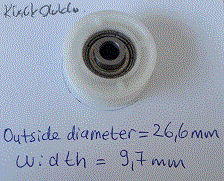 Outside diameter = 26,6 mm
Width = 9,7 mm